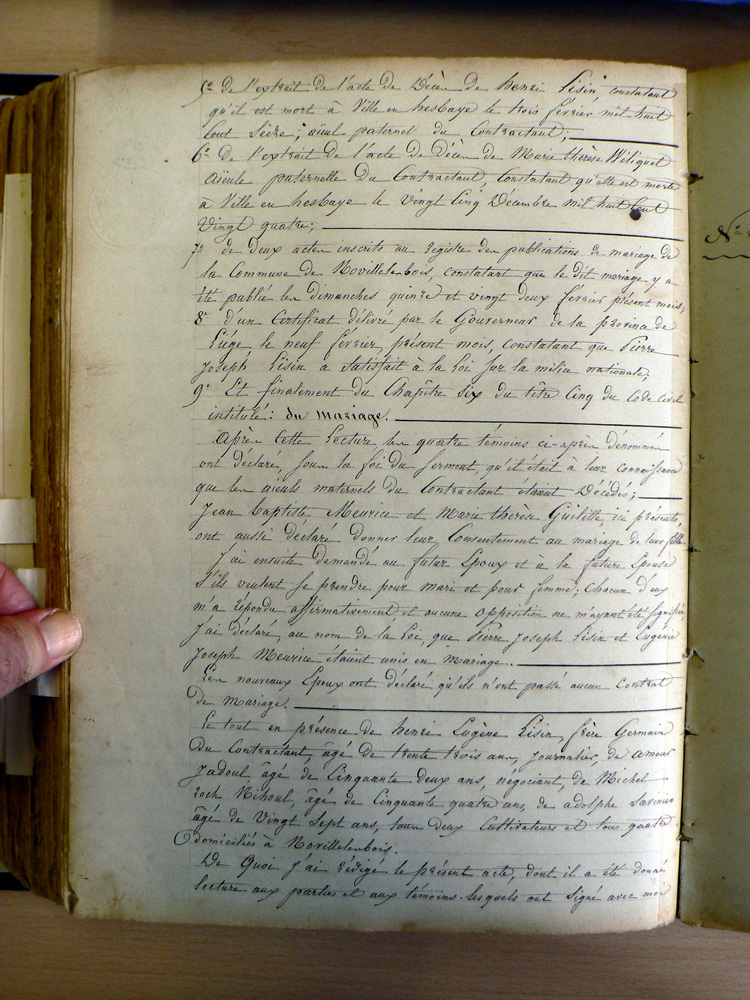 5e de l'extrait de l'acte de Décès de henri Lisin constatant
qu'il est mort à Ville en hesbaye le trois février mil huit
Cent Seize; aïeul paternel du Contractant;
6e de l'extrait de l'acte de Décès de Marie thérèse Wiliquet
aïeule paternelle Du Contractant, constatant qu'elle est morte
à Ville en hesbaye le vingt Cinq Décembre mil huit Cent
vingt quatre;
7e de deux actes inscrits au registre des publications de mariage de
la Commune de Novillelesbois, constatant que le dit mariage y a
été publié les dimanches quinze et vingt deux février présent mois;
8e d'un Certificat délivré par le Gouverneur de la province de
Liége le neuf février, présent mois, constatant que Pierre
Joseph Lisin a satisfait à la loi sur la milice nationale;
9e Et finalement du Chapitre six du titre Cinq du Code Civil
intitulé: du mariage.
Après Cette Lecture les quatre témoins ci-après dénommés
ont déclaré, sous la foi du serment, qu'il était à leur connaissance
que les aïeuls maternels du Contractant étaient Décédés;
Jean baptiste Meurice et Marie thérèse Guilitte, ici présents,
ont aussi déclaré donner leur Consentement au mariage de leur fille.
J'ai ensuite demandé au futur Epoux et à la future Epouse
S'ils veulent se prendre pour mari et pour femme; Chacun d'eux
m'a répondu affirmativement, et aucune opposition ne m'ayant été signifiée
J'ai déclaré, au nom de la Loi, que Pierre Joseph Lisin et Eugénie
Joseph Meurice étaient unis en Mariage.
Les nouveaux Epoux ont déclaré qu'ils n'ont passé aucun Contrat
de Mariage.
Le tout en présence de henri Eugène Lisin, frère Germain
du Contractant, âgé de trente trois ans, journalier, de amour
Jadoul, âgé de Cinquante deux ans, négociant, de Michel
roch Nihoul, âgé de Cinquante quatre ans, de adolphe
âgé de Vingt Sept ans, tous deux Cultivateurs et tous quatre
domiciliés à Novillelesbois.
De Quoi j'ai rédigé le présent acte, dont il a été donné
lecture aux parties et aux témoins. lesquels ont Signé avec moi